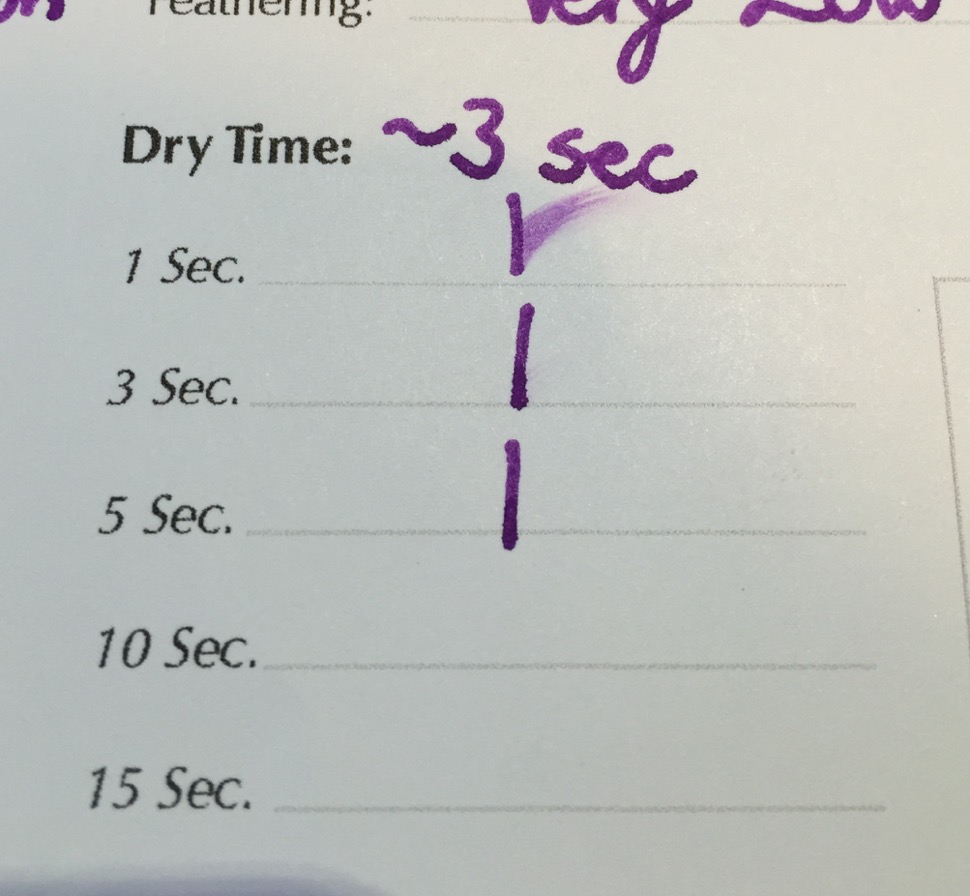 Feathering: Very Low
Dry Time: ~3 sec
1 Sec.
3 Sec.
5 Sec.
10 Sec.
15 Sec.